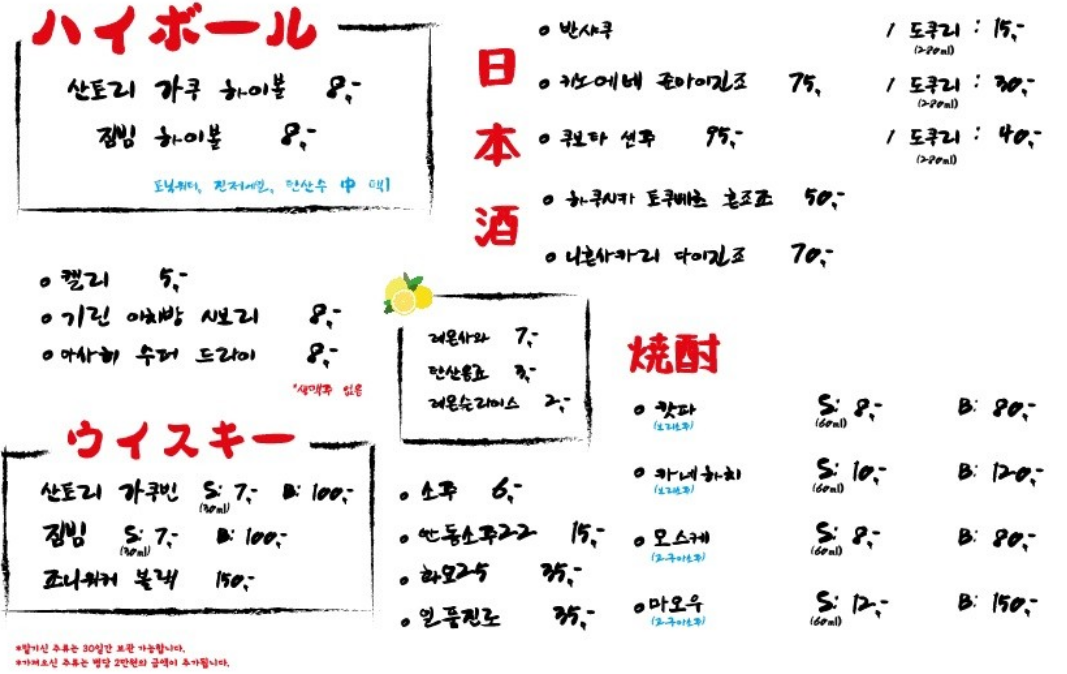 ハイボール
산토리 가쿠 하이볼 8,-
짐빔 하이볼 8,-
토닉워터, 진저에일, 탄산수 中 택1
켈리 5,-
기린 이치방 시보리 8,-
아사히 수퍼 드라이 8,-
*생맥주 없음
ウイスキー
산토리 가쿠빈 S: 7,- B: 100,-
(30ml)
짐빔 S: 7,- B: 100,-
(30ml)
죠니워커 블랙 150,-
*맡기신 주류는 30일간 보관 가능합니다.
*가져오신 주류는 병당 2만원의 금액이 추가됩니다.
日本酒
반샤쿠 / 도쿠리 : 15,-
(280ml)
키노에네 준마이긴죠 75, / 도쿠리 : 30,-
(280ml)
쿠보타 센쥬 95,- / 도쿠리 : 40,-
(280ml)
하쿠시카 토쿠베츠 혼죠조 50,-
니혼사카리 다이긴죠 70,-
레몬사와 7,-
탄산음료 3,-
레몬슬라이스 2,-
소주 6,-
안동소주22 15,-
화요25 35,-
일품진로 35,-
焼酎
캇파 S: 8,- B: 80,-
(보리소주) (60ml)
카네하치 S: 10,- B: 120,-
(보리소주) (60ml)
모스케 S: 8,- B: 80,-
(고구마소주) (60ml)
마오우 S: 12,- B: 150,-
(고구마소주) (60ml)